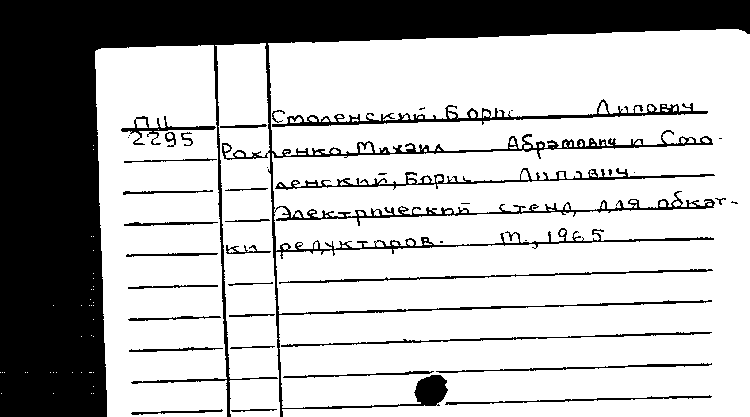 ПЦ Смоленский, Борис Липович
2295
Рохленко, Михаил Абрамович и Смо-
ленский, Борис Липович.
Электрический стенд для обкат-
ки редукторов. М., 1965